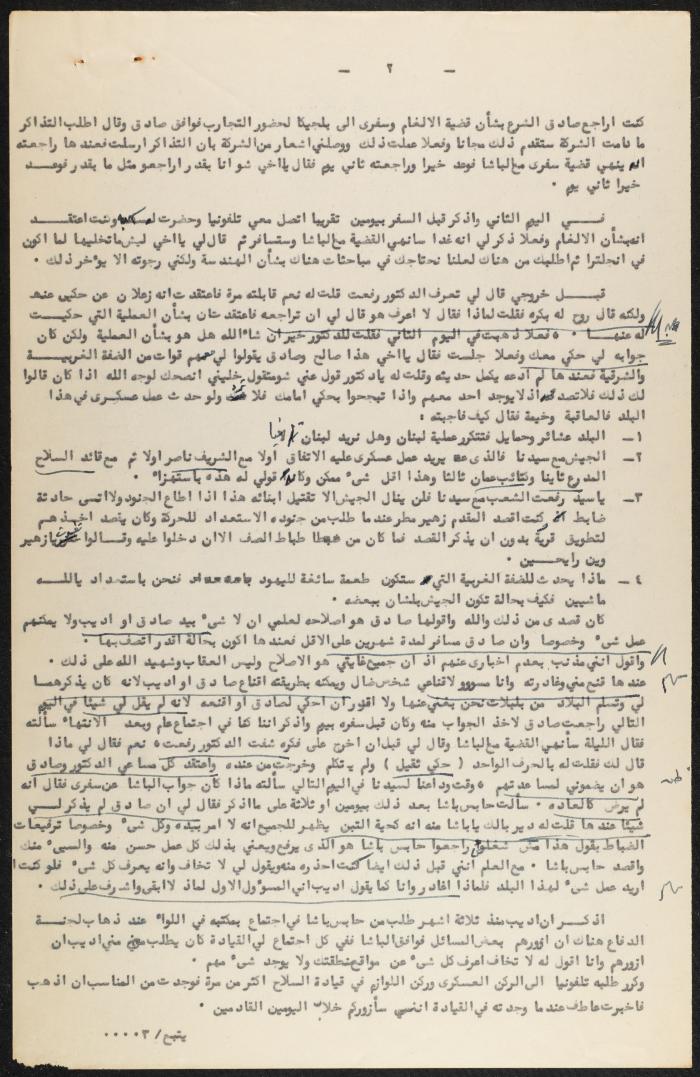 — ٢ —
كنت اراجع صادق الشرع بشأن قضية الالغام وسفرى الى بلجيكا لحضور التجارب فوافق صادق وقال اطلب التذاكر
ما دامت الشركة ستقدم ذلك مجانا وفعلا عملت ذلك ووصلني اشعار من الشركة بان التذاكر ارسلت فعندها راجعته
ان ينهي قضية سفرى مع الباشا فوعد خيرا وراجعته ثاني يوم فقال يااخي شو انا بقدر اراجعو مثل ما بقدر فوعد
خيرا ثاني يوم ٠
فــي اليوم الثاني واذكر قبل السفر بيومين تقريبا اتصل معي تلفونيا وحضرت لمكتبه وكنت اعتقد
انه بشأن الالغام وفعلا ذكر لي انه غدا سانهي القضية مع الباشا وستسافر ثم قال لي يااخي ليش ماتخليها لما اكون
في انجلترا ثم اطلبك من هناك لعلنا نحتاجك في مباحثات هناك بشأن الهندسة ولكني رجوته الا يؤخر ذلك ٠
قبــل خروجي قال لي تعرف الدكتور رفعت قلت له نعم قابلته مرة فاعتقدت انه زعلان عن حكيي عنه
ولكنه قال روح له بكره فقلت لماذا فقال لا اعرف هو قال لي ان تراجعه فاعتقدت ان بشأن العملية التي حكيت
له عنهـا ٠ ٥ فعلا ذهبت في اليوم الثاني فقلت للدكتور خير ان شاء الله هل هو بشأن العملية ولكن كان
جوابه لي حكي معك وفعلا جلست فقال يااخي هذا صالح وصادق يقولوا لي معهم قوات من الضفة الغربيـة
والشرقية فعندها لم ادعه يكمل حديثه وقلت له يادكتور قول عني شو متقول خليني انصحك لوجه الله اذا كان قالوا
لك ذلك فلا تصدق اذ لا يوجد احد معهم واذا تبجحوا بحكي امامك فلا ولو حدث عمل عسكرى في هذا
البلد فالعاقبة وخيمة فقال كيف فاجبته :
١ـ البلد عشائر وحمايل فتتكرر عملية لبنان وهل نريد لبنان
٢ـ الجيش مع سيدنا فالذى يريد عمل عسكرى عليه الاتفاق اولا مع الشريف ناصر اولا ثم مع قائد السلاح
المدرع ثانيا وكتائب عمان ثالثا وهذا اقل شىء ممكن وكان قولي له هذه باستهزاء ٠
٣ـ ياسيد رفعت الشعب مع سيدنا فلن ينال الجيش الا تقتيل ابنائه هذا اذا اطاع الجنود ولا انسى حادثة
ضابط كنت اقصد المقدم زهير مطر عندما طلب من جنوده الاستعداد للحركة وكان يقصد اخذهم
لتطويق قرية بدون ان يذكر القصد فما كان من ضباط الصف الا ان دخلوا عليه وقــالوا يازهير
وين رايحــين ٠
٤ـ ماذا يحدث للضفة الغربية التي ستكون طعمة سائغة لليهود فنحن باستعداد يالله
ماشيين فكيف بحالة تكون الجيش بلشان ببعضه ٠
كان قصدى من ذلك والله واقولها صادق هو اصلاحه لعلمي ان لا شىء بيد صادق او اديب ولا يمكنهم
عمل شىء وخصوصا وان صادق مسافر لمدة شهرين على الاقل فعندها اكون بحالة اقدر اتصف بها ٠
واقول انني مذنب بعدم اخبارى عنهم اذ ان جميع غايتي هو الاصلاح وليس العقاب وشهيد الله على ذلك ٠
عندها قنع مني وغادرته وانا مسرور لاقناعي شخص ضال ويمكنه بطريقته اقناع صادق او اديب لانه كان يذكرهما
لي وتسلم البلاد من بلبلات نحن بغنى عنها ولا اقدر ان احكي لصادق او اقنعه لانه لم يقل لي شيئا في اليوم
التالي راجعت صادق لاخذ الجواب منه وكان قبل سفره بيوم واذكر اننا كنا في اجتماع علم وبعد الانتهاء سألته
فقال الليلة سأنهي القضية مع الباشا وقال لي قبل ان اخرج على فكره شفت الدكتور رفعت ٥ نعم فقال لي ماذا
قال لك فقلت له بالحرف الواحد ( حكي ثقيل ) ولم يتكلم وخرجت من عنده واعتقد كل مساعي الدكتور وصادق
هو ان يضموني لمساعدتهم ٥ وقت وداعنا لسيدنا في اليوم التالي سألته ماذا كان جواب الباشا عن سفرى فقال انه
لم يرض كالعاده ٠ سألت حابس باشا بعد ذلك بيومين او ثلاثة على مااذكر فقال لي ان صادق لم يذكر لــي
شيئا عندها قلت له دير بالك ياباشا منه انه كحية التبن يظهر للجميع انه لا امر بيده وكل شىء وخصوصا ترفيعات
الضباط يقول هذا مش شغلي راجعوا حابس باشا هو الذى يرفع ويعني بذلك كل عمل حسن منه والسيىء منك
واقصد حابس باشا ٠ مع العلم انني قبل ذلك ايضا كنت احذره منه ويقول لي لا تخاف وانه يعرف كل شىء فلو كنت
اريد عمل شىء لهذا البلد فلماذا اغادر وانا كما يقول اديب اني المسؤول الاول لماذ لا ابقى واشرف على ذلك ٠
اذكـر ان اديب منذ ثلاثة اشهر طلب من حابس باشا في اجتماع بمكتبه في اللواء عند ذهاب لجنــة
الدفاع هناك ان ازورهم بعض المسائل فوافق الباشا ففي كل اجتماع لي القيادة كان يطلب مني اديب ان
ازورهم وانا اقول له لا تخاف اعرف كل شىء عن مواقع منطقتك ولا يوجد شىء مهم ٠
وكرر طلبه تلفونيا الى الركن العسكرى وركن اللوازم في قيادة السلاح اكثر من مرة فوجدت من المناسب ان اذهب
فاخبرت عاطف عندما وجدته في القيادة انني سأزوركم خلال اليومين القادمين ٠
يتبع / ٣٠٠٠٠